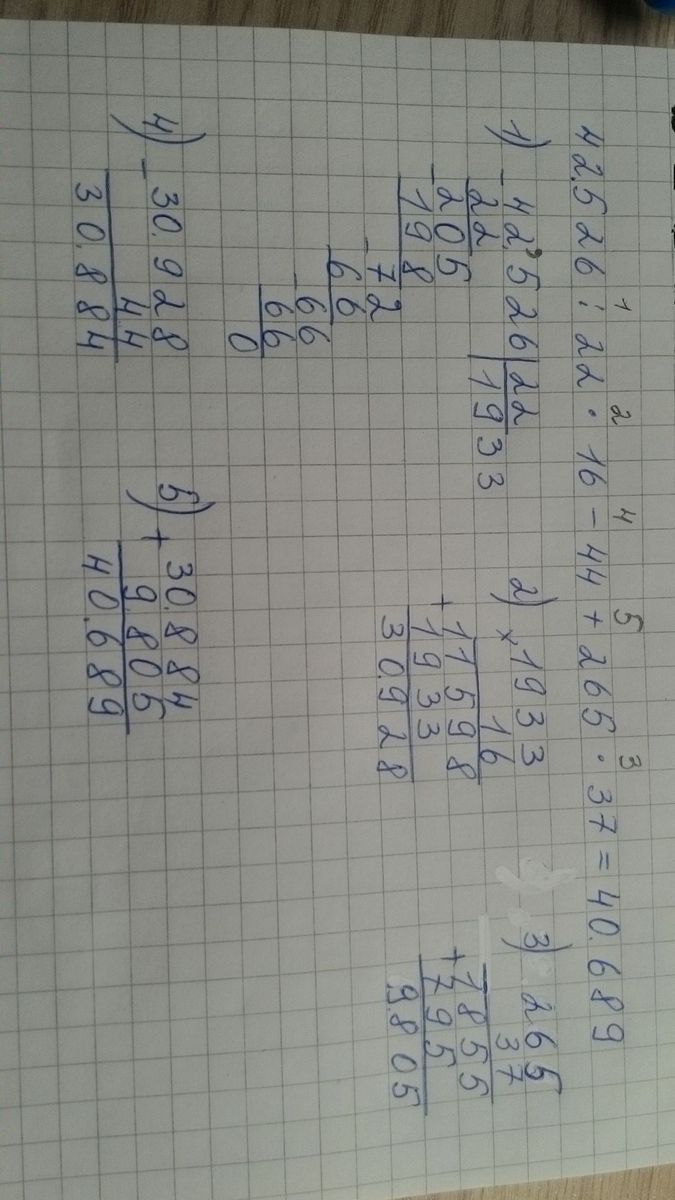 1 2 4 5 3
42.526 : 22 · 16 - 44 + 265 · 37 = 40.689
1) - 42526 | 22
22 1933
- 205
198
- 72
66
- 66
66
0
2) × 1933
16
+ 11598
1933
30.928
3) 265
37
+ 1855
795
9.805
4) - 30.928
44
30.884
5) + 30.884
9.805
40.689